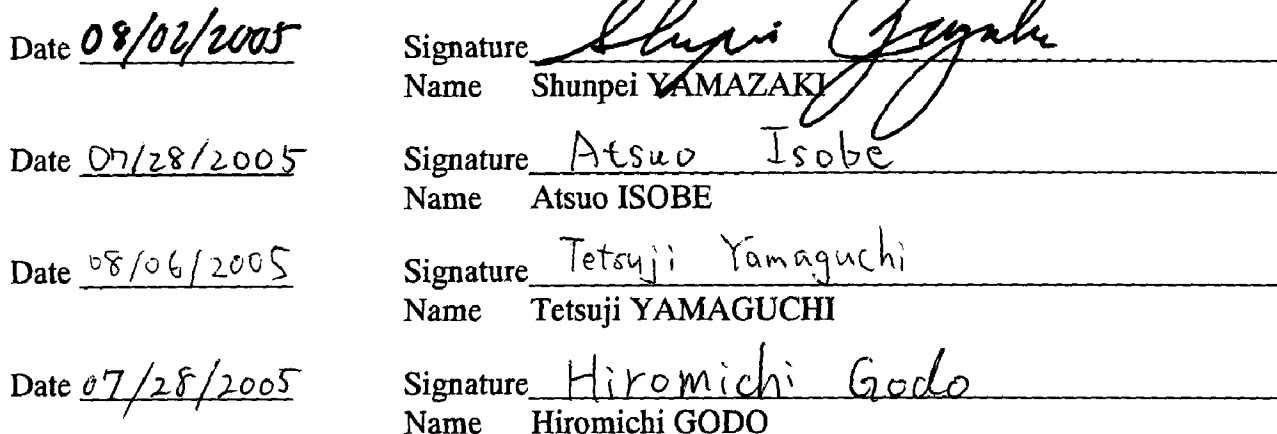 Date 08/02/2005 Signature Shunpei Yamazaki
Name Shunpei YAMAZAKI
Date 07/28/2005 Signature Atsuo Isobe
Name Atsuo ISOBE
Date 08/06/2005 Signature Tetsuji Yamaguchi
Name Tetsuji YAMAGUCHI
Date 07/28/2005 Signature Hiromichi Godo
Name Hiromichi GODO